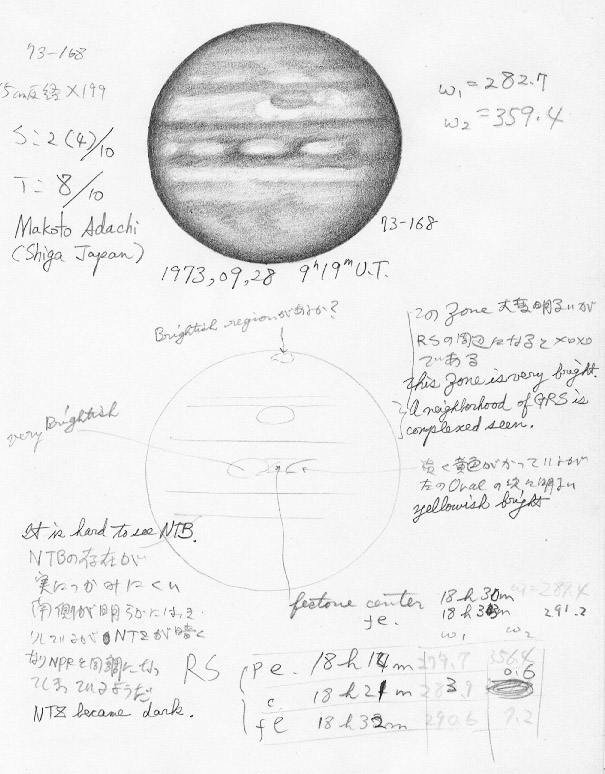 73-168
15cm反経 X199
S: 2(4)/10
T: 8/10
Makoto Adachi
(Shiga Japan)
ω1 = 282.7
ω2 = 359.4
73-168
1973,09,28 9h19m U.T.
Brightish regionがあるか?
このZone 大変明るいが
RSの周辺になると
である
This Zone is very bright.
A neighborhood of GRS is
complexed seen.
very Brightish
淡く黄色がかっているが
左のOvalの
yellowish bright
It is hard to see NTB.
NTBの存在が
実につかみにくい
南側が明るかには
NTZが暗く
なりNPRと同調になっ
てしまっているようだ
NTZ became dark.
festone center 18h30m ω1=289.4
fe. 18h33m 291.2
ω1 ω2
RS
Pe. 18h14m 279.7 356.4
c. 18h21m 283.9 0.6
fe 18h32m 290.6 7.2